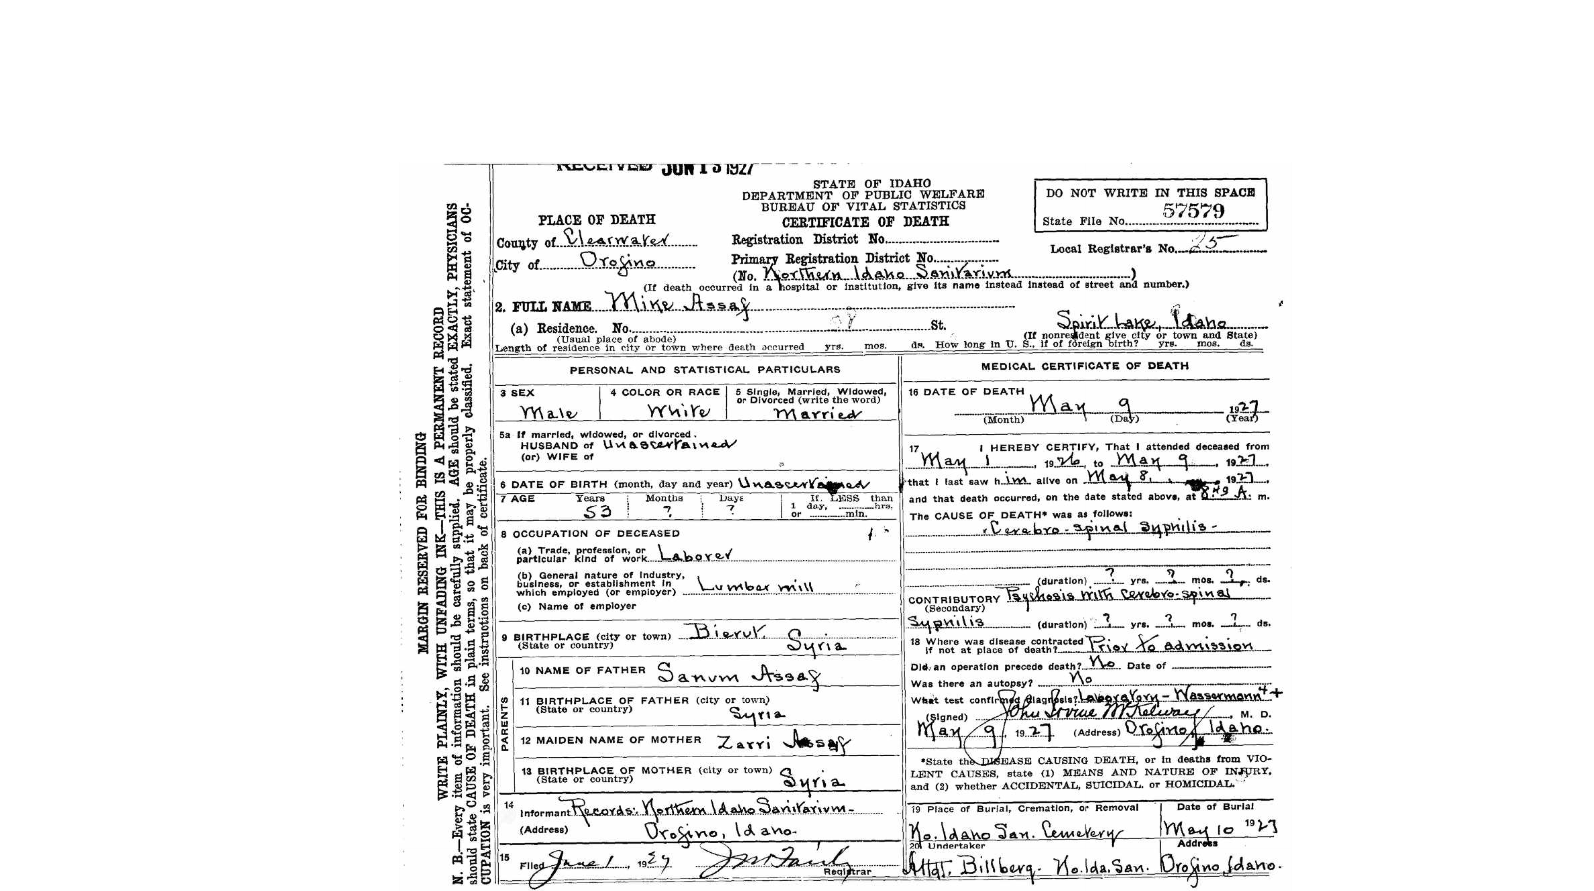 RECEIVED JUN 13 1927
STATE OF IDAHO
DEPARTMENT OF PUBLIC WELFARE
BUREAU OF VITAL STATISTICS
CERTIFICATE OF DEATH
DO NOT WRITE IN THIS SPACE
State File No. 57579
Local Registrar's No. 25
PLACE OF DEATH
County of Clearwater
City of Orofino
Registration District No.
Primary Registration District No.
(No. Northern Idaho Sanitarium)
(If death occurred in a hospital or institution, give its name instead instead of street and number.)
2. FULL NAME Mike Assaf
(a) Residence. No. St. Spirit Lake, Idaho
(Usual place of abode) (If nonresident give city or town and State)
Length of residence in city or town where death occurred yrs. mos. ds. How long in U. S., if of foreign birth? yrs. mos. ds.
PERSONAL AND STATISTICAL PARTICULARS
3 SEX
Male
4 COLOR OR RACE
White
5 Single, Married, Widowed,
or Divorced (write the word)
Married
5a If married, widowed, or divorced.
HUSBAND of Unascertained
(or) WIFE of
6 DATE OF BIRTH (month, day and year) Unascertained
7 AGE Years Months Days If LESS than
53 ? ? 1 day, hrs.
or min.
8 OCCUPATION OF DECEASED
(a) Trade, profession, or
particular kind of work Laborer
(b) General nature of Industry,
business, or establishment in
which employed (or employer) Lumber mill
(c) Name of employer
9 BIRTHPLACE (city or town) Bierut.
(State or country) Syria
PARENTS
10 NAME OF FATHER Sanum Assaf
11 BIRTHPLACE OF FATHER (city or town)
(State or country) Syria
12 MAIDEN NAME OF MOTHER Zarri Assaf
13 BIRTHPLACE OF MOTHER (city or town)
(State or country) Syria
14
Informant Records: Northern Idaho Sanitarium-
(Address) Orofino, Idaho-
15
Filed June 1, 1927
Registrar
MEDICAL CERTIFICATE OF DEATH
16 DATE OF DEATH May 9 1927
(Month) (Day) (Year)
17 I HEREBY CERTIFY, That I attended deceased from
May 1, 1926, to May 9, 1927
that I last saw him alive on May 8, 1927
and that death occurred, on the date stated above, at A. m.
The CAUSE OF DEATH* was as follows:
Cerebro-spinal Syphilis-
(duration) ? yrs. ? mos. ? ds.
CONTRIBUTORY Psychosis with cerebro-spinal
(Secondary)
Syphilis (duration) ? yrs. ? mos. ? ds.
18 Where was disease contracted
if not at place of death? Prior to admission
Did an operation precede death? No Date of
Was there an autopsy? No
What test confirmed diagnosis? Laboratory-Wassermann 4+
(Signed) John Irvine McKelway, M. D.
May 9, 1927 (Address) Orofino, Idaho.
*State the DISEASE CAUSING DEATH, or in deaths from VIO-
LENT CAUSES, state (1) MEANS AND NATURE OF INJURY,
and (2) whether ACCIDENTAL, SUICIDAL, or HOMICIDAL.
19 Place of Burial, Cremation, or Removal
No. Idaho San. Cemetery
Date of Burial
May 10 1927
20 Undertaker Address
Billberg- No. Ida. San. Orofino Idaho.
MARGIN RESERVED FOR BINDING
WRITE PLAINLY, WITH UNFADING INK—THIS IS A PERMANENT RECORD
N. B.—Every item of information should be carefully supplied. AGE should be stated EXACTLY, PHYSICIANS
should state CAUSE OF DEATH in plain terms, so that it may be properly classified. Exact statement of OC-
CUPATION is very important. See instructions on back of certificate.